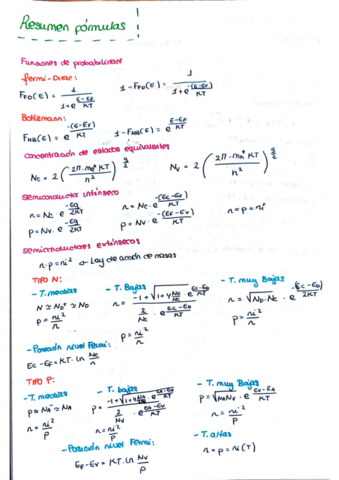 Resumen fórmulas!
Funciones de probabilidad
Fermi-Dirac:
F_FD(E) = 1 / (1+e^((E-E_F)/KT))    1-F_FD(E) = 1 / (1+e^(-(E-E_F)/KT))
Boltzmann:
F_MB(E) = e^(-(E-E_F)/KT)    1-F_MB(E) = e^((E-E_F)/KT)
Concentración de estados equivalentes
N_C = 2 (2π·m_e*KT / h²)^(3/2)    N_V = 2 (2π·m_h*KT / h²)^(3/2)
Semiconductor intrínseco
n = N_C·e^(-Eg/2KT)    n = N_C·e^(-(E_C-E_F)/KT)    n=p=ni
p = N_V·e^(-Eg/2KT)    p = N_V·e^(-(E_F-E_V)/KT)
Semiconductores extrínsecos
n·p = ni² → Ley de acción de masas
TIPO N:
- T. medias    - T. Bajas    - T. muy Bajas
N ≃ N_D⁺ ≃ N_D    n = (-1+√(1+4 N_D/N_C e^((E_C-E_D)/KT))) / (2/N_C · e^((E_C-E_D)/KT))    n = √(N_D·N_C) · e^(-(E_C-E_D)/2KT)
p = ni²/n    p = ni²/n    p = ni²/n
- Posición nivel Fermi:
E_C-E_F = KT·ln N_C/n
TIPO P:
- T. medias    - T. bajas    - T. muy Bajas
p ≃ N_A⁻ ≃ N_A
n = ni²/p    n = ni²/p    n = ni²/p
- T. altas
- Posición nivel Fermi:    n = p = ni(T)
E_F-E_V = KT·ln N_V/p